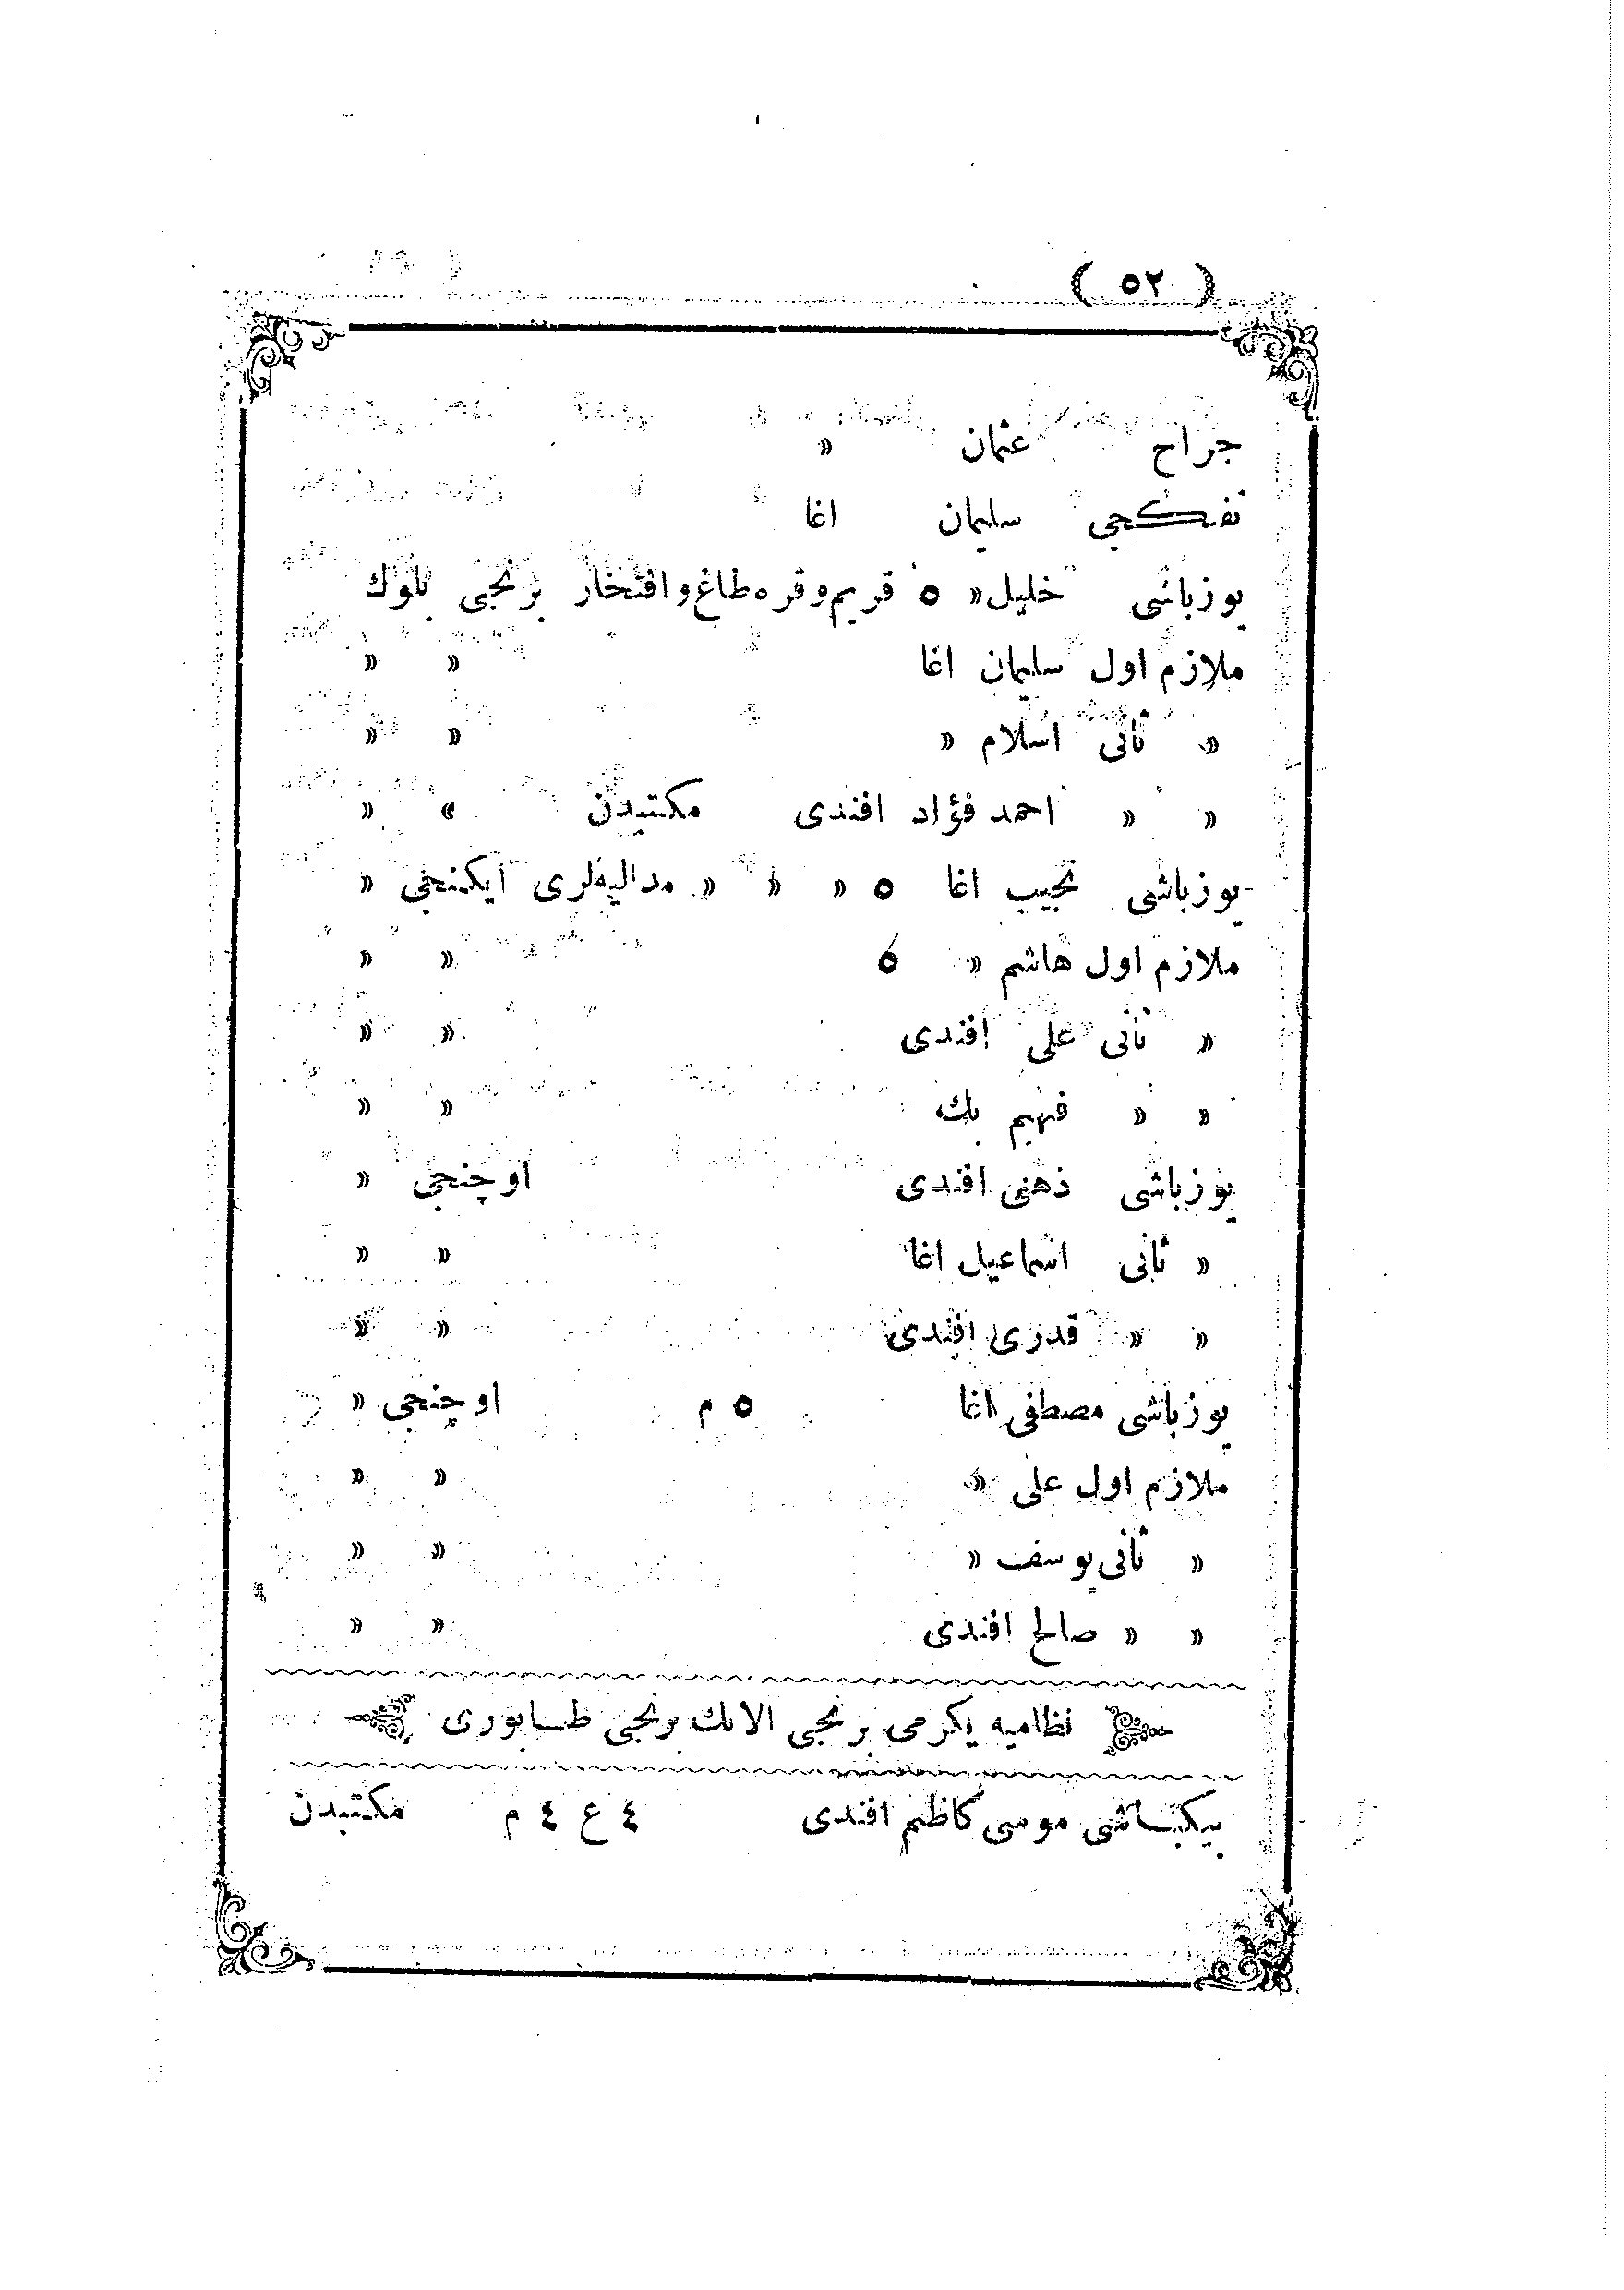 ( ٥٢ )
جراح عثمان »
تفنكجی سلیمان اغا
یوزباشی خلیل » ٥ قریم وقره طاغ وافتخار برنجی بلوك
ملازم اول سلیمان اغا » »
» ثانی اسلام » » »
» » احمد فؤاد افندی مكتبدن » »
یوزباشی نجیب اغا ٥ » » » مدالیه‌لری ایكنجی »
ملازم اول هاشم » ٥ » »
» ثانی علی افندی » »
» » فهیم بك » »
یوزباشی ذهنی افندی اوچنجی »
» ثانی اسماعیل اغا » »
» » قدری افندی » »
یوزباشی مصطفی اغا ٥ م اوچنجی »
ملازم اول علی » » »
» ثانی یوسف » » »
» » صالح افندی » »
نظامیه یكرمی برنجی الایك برنجی طابوری
بیكباشی موسی كاظم افندی ٤ ع ٤ م مكتبدن